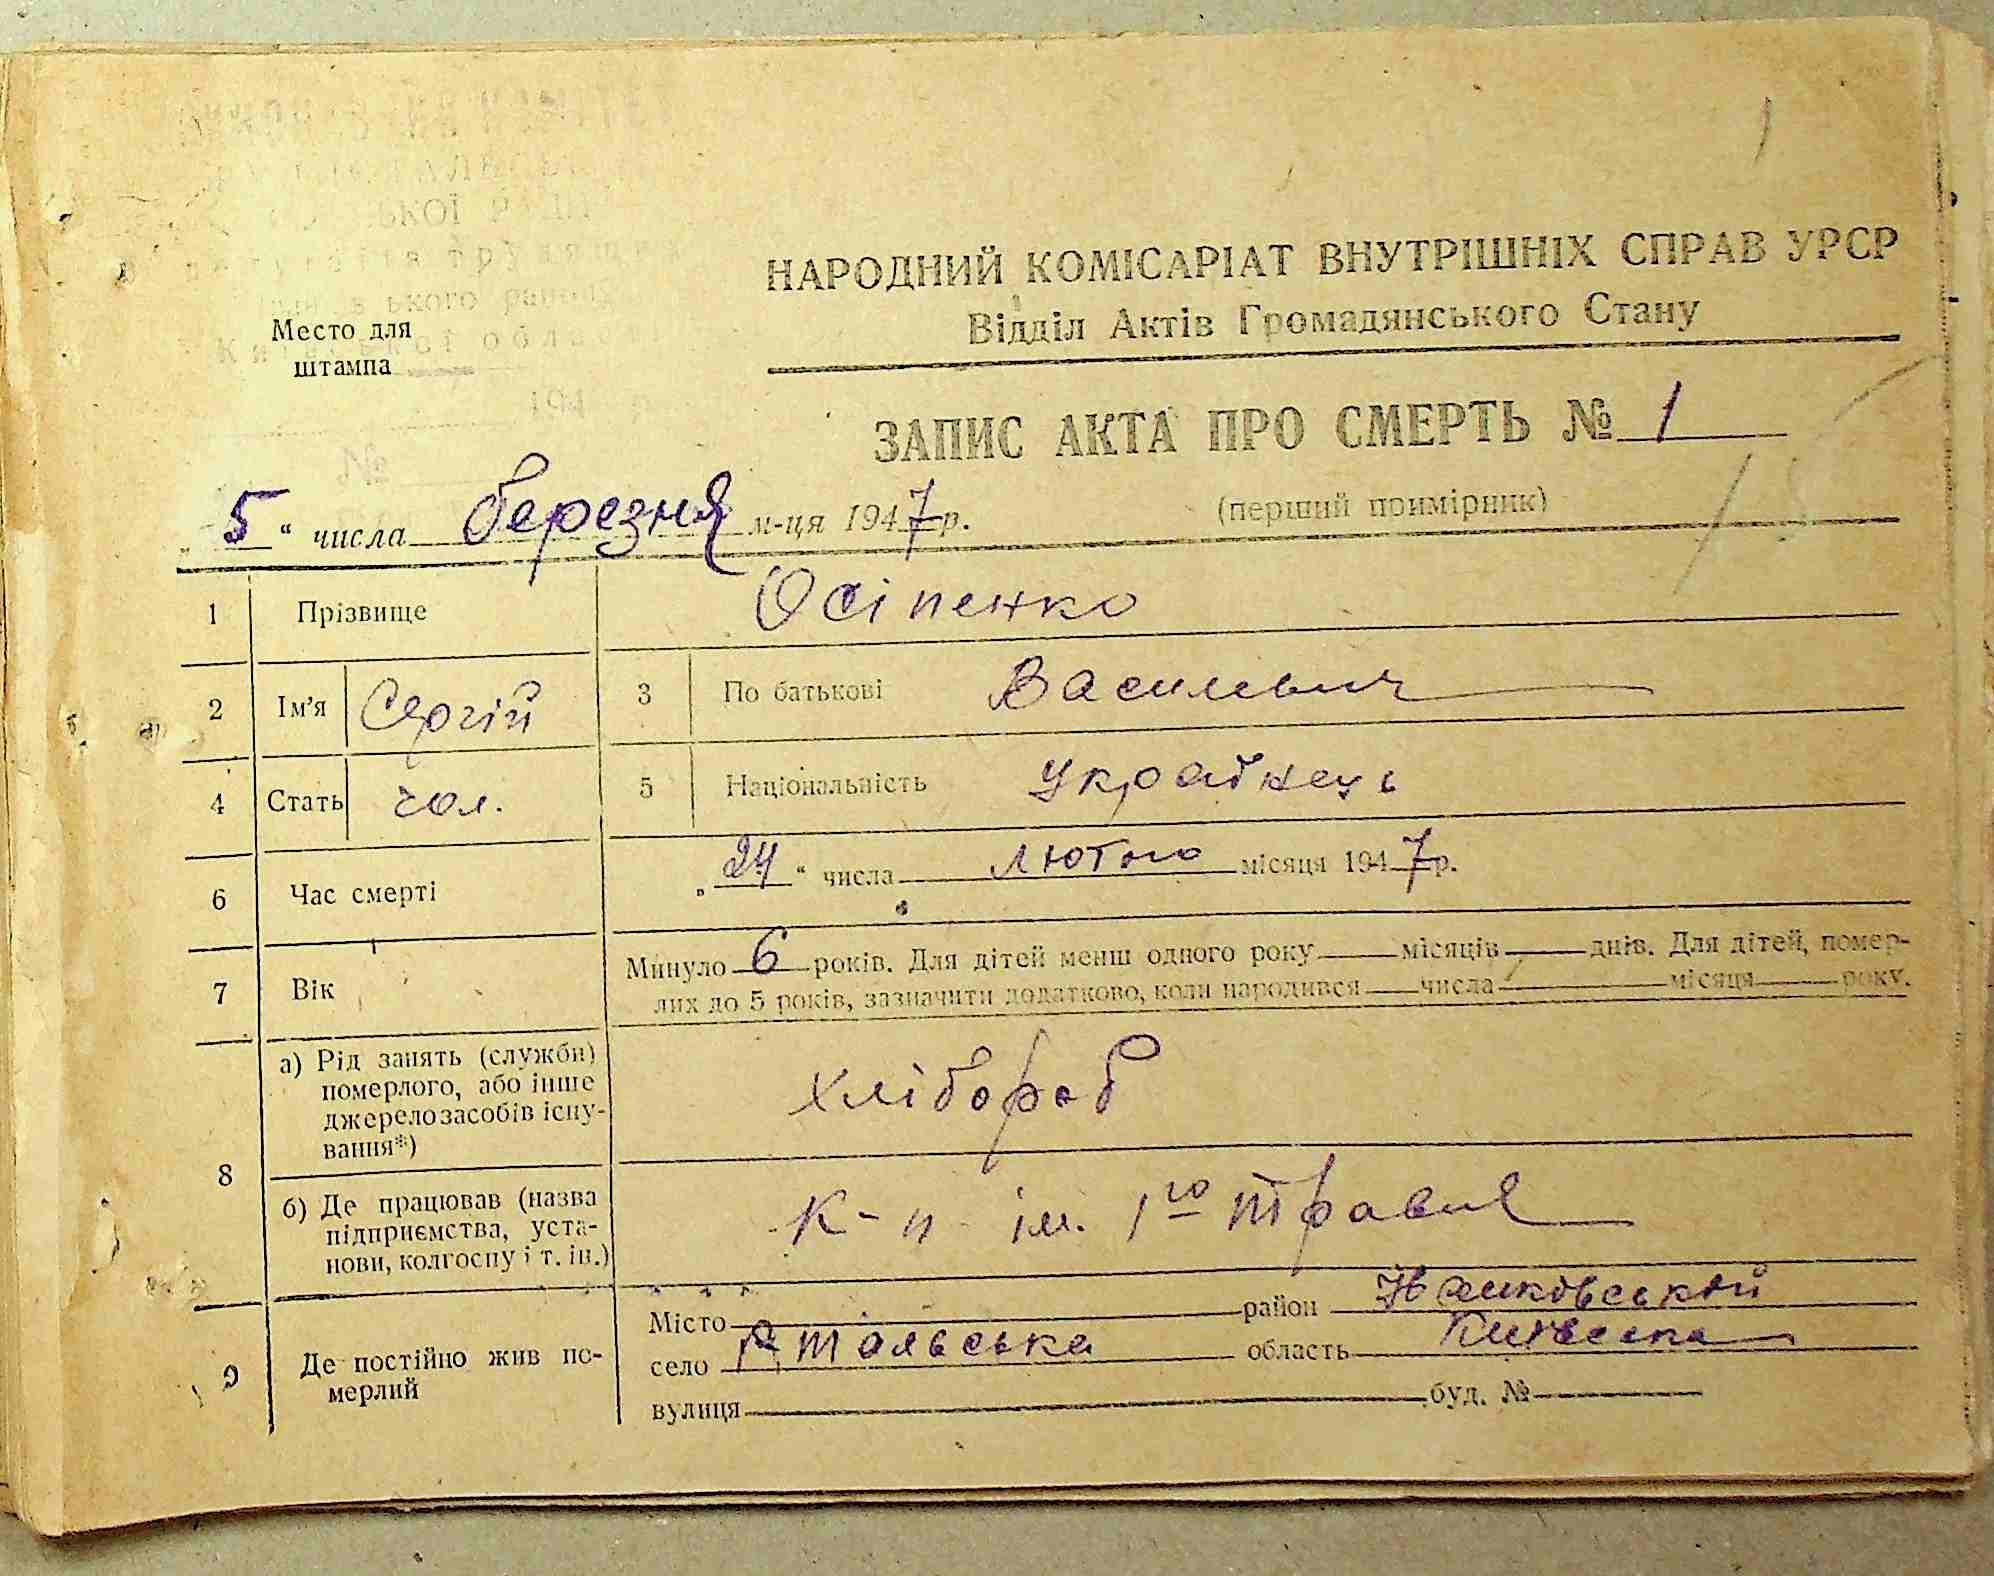 Место для
штампа
НАРОДНИЙ КОМІСАРІАТ ВНУТРІШНІХ СПРАВ УРСР
Відділ Актів Громадянського Стану
ЗАПИС АКТА ПРО СМЕРТЬ № 1
„5“ числа березня м-ця 1947 р.
(перший примірник)
1 Прізвище Осіпенко
2 Ім'я Сергій 3 По батькові Василевич
4 Стать чол. 5 Національність Українець
6 Час смерті „24“ числа лютого місяця 1947 р.
7 Вік Минуло 6 років. Для дітей менш одного року місяців днів. Для дітей, помер-
лих до 5 років, зазначити додатково, коли народився числа місяця року.
8 а) Рід занять (служби)
померлого, або інше
джерело засобів існу-
вання*)
хлібороб
б) Де працював (назва
підприємства, уста-
нови, колгоспу і т. ін.)
К-п ім. 1го травня
9 Де постійно жив по-
мерлий
Місто район
село Р, Тальська область Київська
вулиця буд. №